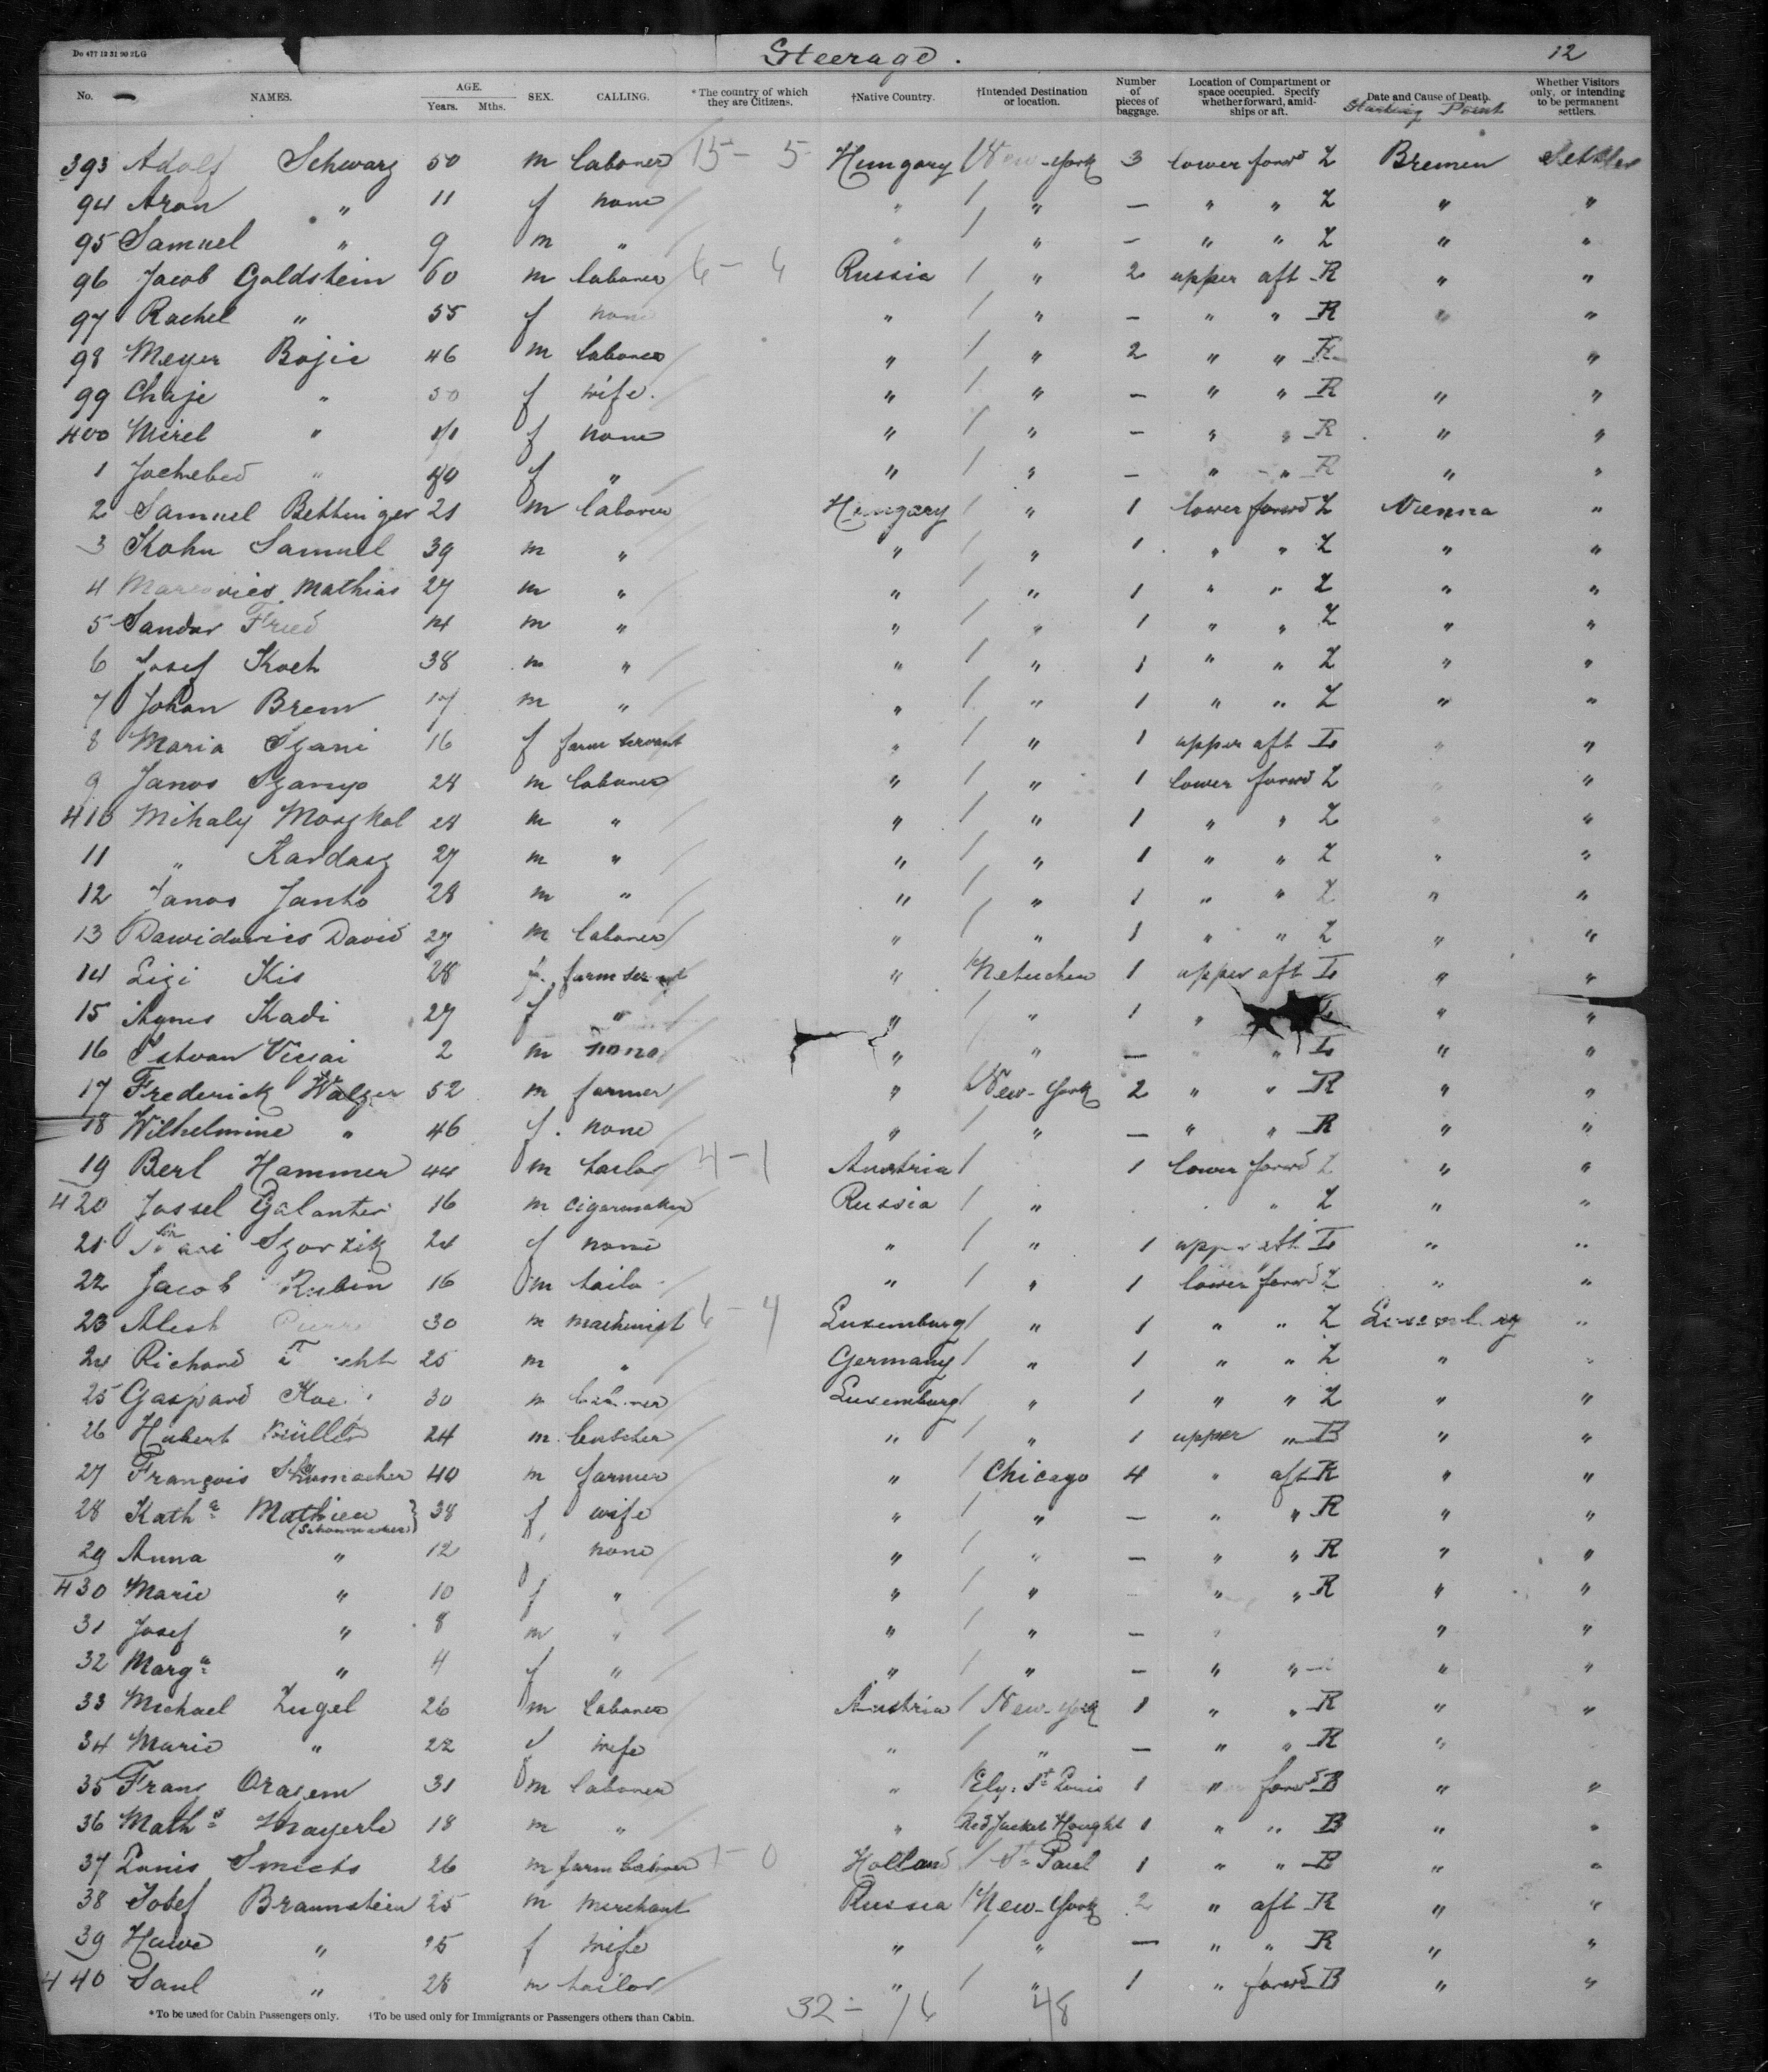 Do 477 12 31 90 2LG
Steerage.
12
No. NAMES. AGE. Years. Mths. SEX. CALLING. *The country of which they are Citizens. †Native Country. †Intended Destination or location. Number of pieces of baggage. Location of Compartment or space occupied. Specify whether forward, amidships or aft. Date and Cause of Death. Starting Point Whether Visitors only, or intending to be permanent settlers.
393 Adolf Schwarz 50 m laborer 15 - 5 Hungary / New-York 3 lower forwd Z Bremen Settler
94 Aron " 11 f none " / " — " " Z " "
95 Samuel " 9 m " " / " — " " Z " "
96 Jacob Goldstein 60 m laborer 6 - 6 Russia / " 2 upper aft R " "
97 Rachel " 55 f none " / " — " " R " "
98 Meyer Bojie 46 m laborer " / " 2 " " R "
99 Chaje " 50 f wife. " / " — " " R " "
400 Mirel " f none " / " — " " R " "
1 Jochebed " f " " / " — " " R " "
2 Samuel Bettinger 21 m laborer Hungary / " 1 lower forwd Z Vienna "
3 Kohn Samuel 39 m " " / " 1 " " Z " "
4 Mathias 27 m " " / " 1 " " Z " "
5 Sandor Fried 14 m " " / " 1 " " Z " "
6 Josef Koch 38 m " " / " 1 " " Z " "
7 Johan Brem 17 m " " / " 1 " " Z " "
8 Maria Szani 16 f farm servant " / " 1 upper aft Is " "
9 Janos Szanyo 28 m laborer " / " 1 lower forwd Z " "
410 Mihaly Moszkal 28 m " " / " 1 " " Z " "
11 " Kardasz 27 m " " / " 1 " " Z " "
12 Janos Janko 28 m " " / " 1 " " Z " "
13 Dawidovics David 27 m laborer " / " 1 " " Z " "
14 Lizi Kis 28 f. farm servant " / Metuchen 1 upper aft Is " "
15 Agnes Kadi 27 f " " / " 1 " " "
16 Istvan 2 m none " " — " " Is " "
17 Frederick Walzer 52 m farmer " / New-York 2 " " R " "
18 Wilhelmine " 46 f. none " / " — " " R " "
19 Berl Hammer 44 m tailor 4 - 1 Austria / 1 lower forwd Z " "
420 Jossel Galanter 16 m cigarmaker Russia / " " Z " "
21 24 f none " / " 1 upper aft Is " "
22 Jacob Rubin 16 m tailor " / " 1 lower forwd Z " "
23 Alesch Pierre 30 m machinist 6 - 4 Luxemburg / " 1 " " Z Luxemburg "
24 Richard 25 m " Germany / " 1 " " Z " "
25 Gaspard 30 m laborer Luxemburg / " 1 " " Z " "
26 Hubert Müller 24 m. butcher " / " 1 upper " B " "
27 François Schumacher 40 m farmer " / Chicago 4 " aft R " "
28 Kath a Mathieu (Schoumacker) } 38 f wife " / " — " " R " "
29 Anna " 12 f none " / " — " " R " "
430 Marie " 10 f " " / " " " R " "
31 Josef " 8 m " " / " — " " "
32 Marg a " 4 f " " / " — " " " "
33 Michael Zugel 26 m laborer Austria / New-York 1 " " R " "
34 Marie " 22 f wife " / " — " " R "
35 Franz Orazem 31 m laborer " / Ely: St Louis 1 " forwd B " "
36 Math s Mayerle 18 m " " Red Jacket Hought 1 " " B " "
37 Louis Smiets 26 m farm laborer 1 - 0 Holland / St Paul 1 " " B " "
38 Josef Braunstein 25 m merchant Russia / New-York 2 " aft R " "
39 Hawe " 25 f wife " / " — " " R " "
440 Saul " 28 m tailor " / " 1 " forwd B " "
*To be used for Cabin Passengers only. †To be used only for Immigrants or Passengers others than Cabin.
32 - 16 48